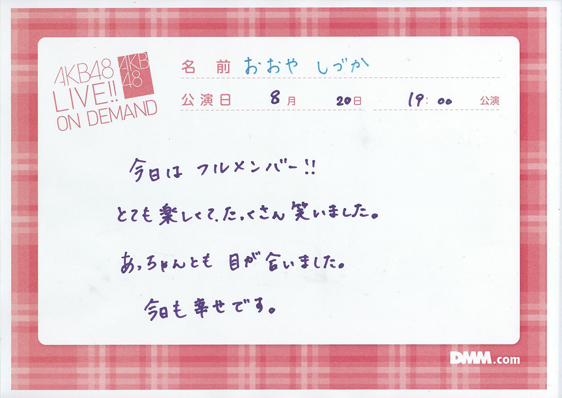 AKB48
LIVE!!
ON DEMAND
AKB
48
名前 おおや しづか
公演日 8月 20日 19:00 公演
今日は フルメンバー!!
とても楽しくて、たっくさん 笑いました。
あっちゃんとも 目が合いました。
今日も 幸せです。
DMM.com